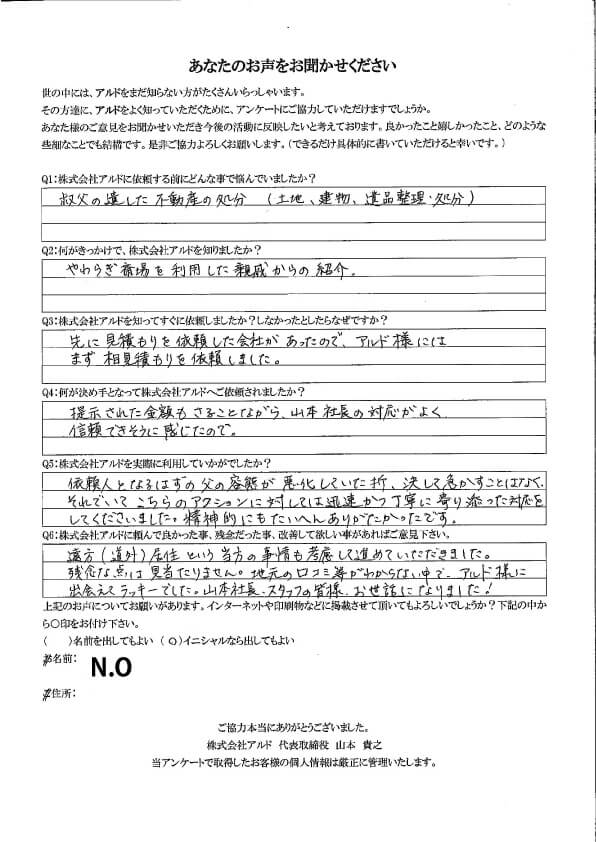 あなたのお声をお聞かせください
世の中には、アルドをまだ知らない方がたくさんいらっしゃいます。
その方達に、アルドをよく知っていただくために、アンケートにご協力していただけますでしょうか。
あなた様のご意見をお聞かせいただき今後の活動に反映したいと考えております。良かったこと嬉しかったこと、どのような
些細なことでも結構です。是非ご協力よろしくお願いします。（できるだけ具体的に書いていただけると幸いです。）
Q1：株式会社アルドに依頼する前にどんな事で悩んでいましたか？
叔父の遺した不動産の処分 （土地、建物、遺品整理・処分）
Q2：何がきっかけで、株式会社アルドを知りましたか？
やわらぎ斎場を利用した親戚からの紹介。
Q3：株式会社アルドを知ってすぐに依頼しましたか？しなかったとしたらなぜですか？
先に見積もりを依頼した会社があったので、アルド様には
まず相見積もりを依頼しました。
Q4：何が決め手となって株式会社アルドへご依頼されましたか？
提示された金額もさることながら、山本社長の対応がよく、
信頼できそうに感じたので。
Q5：株式会社アルドを実際に利用していかがでしたか？
依頼人となるはずの父の容態が悪化していた折、決して急かすことはなく、
それでいてこちらのアクションに対しては迅速かつ丁寧に寄り添った対応を
してくださいました。精神的にもたいへんありがたかったです。
Q6：株式会社アルドに頼んで良かった事、残念だった事、改善して欲しい事があればご意見下さい。
遠方（道外）居住という当方の事情も考慮して進めていただきました。
残念な点は見当たりません。地元の口コミ等がわからない中で、アルド様に
出会えてラッキーでした。山本社長、スタッフの皆様、お世話になりました！
上記のお声についてお願いがあります。インターネットや印刷物などに掲載させて頂いてもよろしいでしょうか？下記の中か
ら〇印をお付け下さい。
（　）名前を出してもよい （○）イニシャルなら出してもよい
お名前： N.O
ご住所：
ご協力本当にありがとうございました。
株式会社アルド 代表取締役 山本 貴之
当アンケートで取得したお客様の個人情報は厳正に管理いたします。